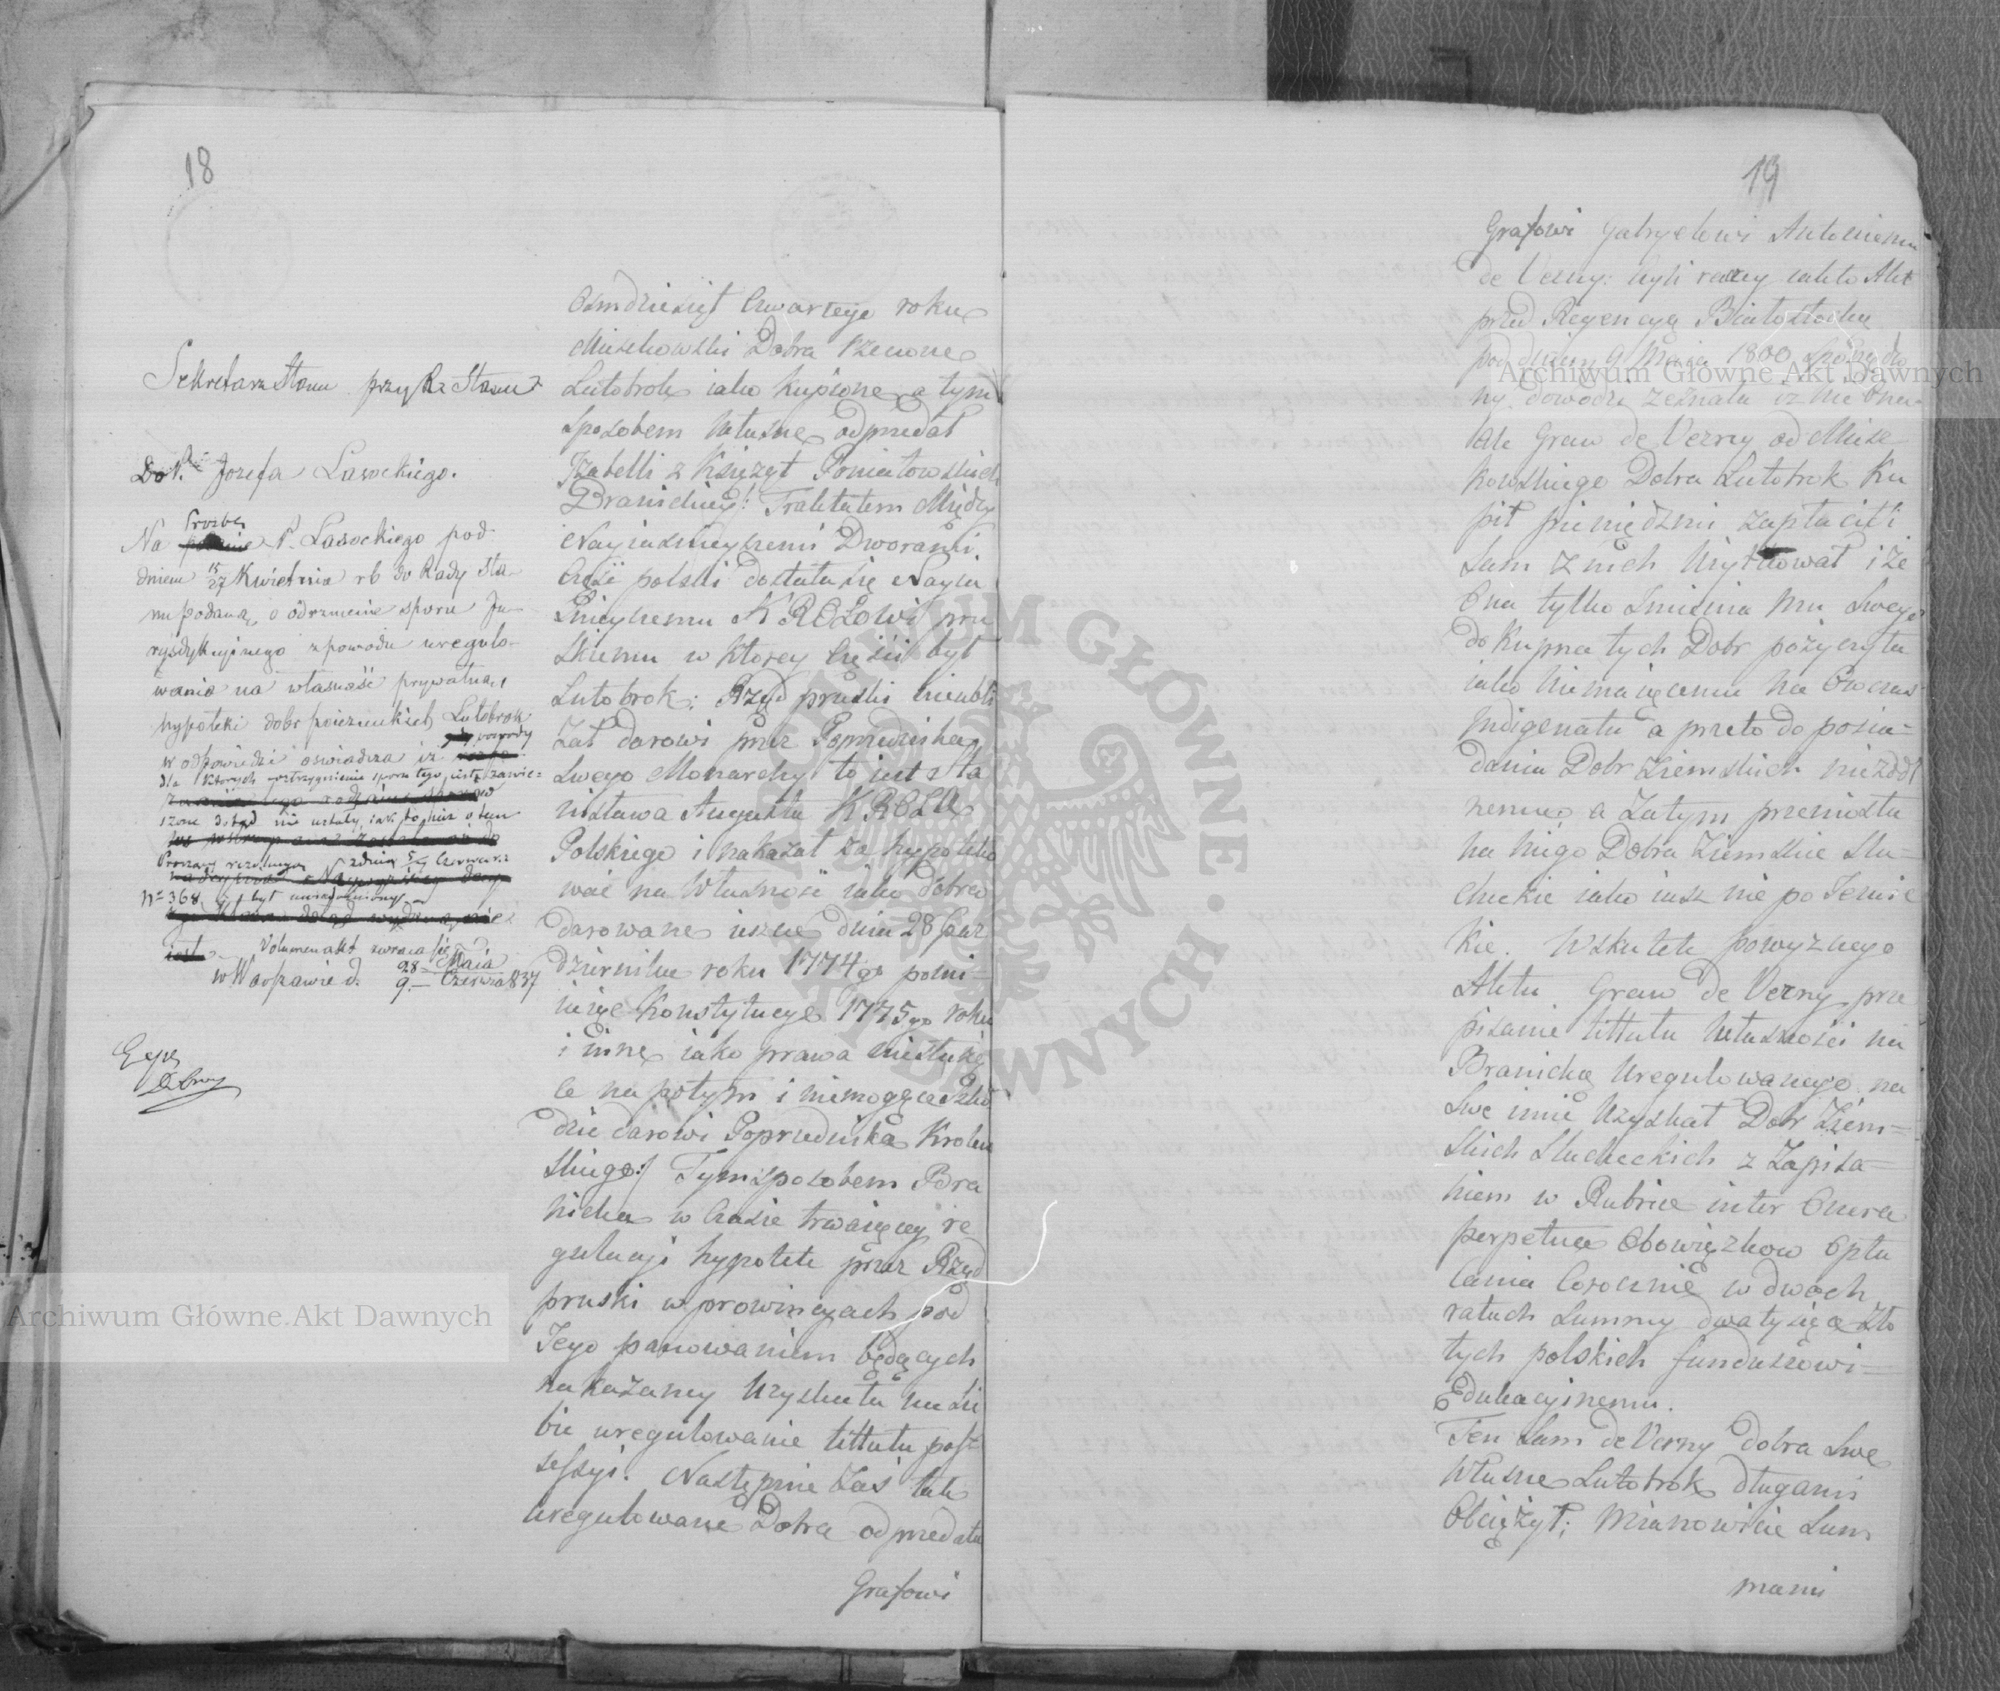 18
Sekretarz Stanu przy R. Stanu
Do P. Jozefa Lasockiego.
Na prozbę P. Lasockiego pod
dniem 15/27 Kwietnia rb do Rady Sta-
nu podaną, o odrzucenie sporu Ju-
rysdykcyjnego z powodu uregulo-
wania na własność prywatną
hypoteki dobr pojezuickich Lutobrok
w odpowiedzi oswiadcza iż powody
dla ktorych roztrzygnienie sporu tego jest zawie-
szone dotąd nie ustały, jak to już o tem
Prozący rezolucyą z dnia Czerwca
N° 368 był uwiadomiony.
Volumen akt zwraca się
w Warszawie d. 28 Maja
9 Czerwca 837
Osmdziesiąt Czwartego roku
Mierzkowski Dobra rzeczone
Lutobrok iako kupione a tym
sposobem własne odprzedał
Izabelli z Xiążąt Poniatowskich
Branickiey: Traktatem Między
Nayiasnieyszemi Dworami
Część polski dostała się Nayia
snieyszemu KROLOWI pru
skiemu w ktorey Części był
Lutobrok: Rząd pruski nieubli
żał darowi przez Poprzednika
Swego Monarchy to iest Sta
nisława Augusta KROLA
Polskiego i nakazał za hypoteko
wać na Własność iako Dobra
darowane ieszcze dnia 28 Paz
dziernika roku 1774go pomi-
iaiąc Konstytucye 1775go roku
i inne iako prawa niesłużą
ce na potym i niemogące Szko
dzic darowi Poprzednika Krolew
skiego/ Tym sposobem Bra
nicka w Czasie trwaiącey re
gulacyi hypotek przez Rząd
pruski w prowincyach pod
Jego panowaniem będących
nakazaney Uzyskała na Sie
bie uregulowanie tittułu poss
sessyi. Następnie zaś tak
uregulowane Dobra odprzedała
Grafowi
19
Grafowi Gabryelowi Antoniemu
de Verny: czyli raczey iak to Akt
przed Regencyą Białostocką
pod dniem 9 Maja 1800
ny dowodzi zeznała iż nie Ona
Ale Graw de Verny od Mierz-
kowskiego Dobra Lutobrok Ku
pił pieniędzmi zapłacił i
Sam z nich Użytkował i że
Ona tylko Imienia Mu Swego
do Kupna tych Dobr pożyczyła
iako Niemaiącemu na Owczas
Indigenatu a przeto do posia-
dania Dobr Ziemskich niezdol
nemu a Zatym przeniosła
na niego Dobra Ziemskie Sla-
checkie iako iusz nie po Jezuic
kie. W skutek powyzszego
Aktu Graw de Verny prze
pisanie tittułu Własności na
Branicką Uregulowanego na
Swe imie Uzyskał Dobr Ziem-
skich Slacheckich z Zapisa-
niem w Rubrice inter Onera
perpetua Obowiązkow Opła
cania Corocznie w dwoch
ratach Summy dwa tysiące Zło
tych polskich funduszowi-
Edukacyinemu.
Ten Sam de Verny dobra Swe
Własne Lutobrok długami
Obciążył; Mianowicie Sum
mami
Archiwum Główne Akt Dawnych
Archiwum Główne Akt Dawnych
ARCHIWUM GŁÓWNE AKT DAWNYCH